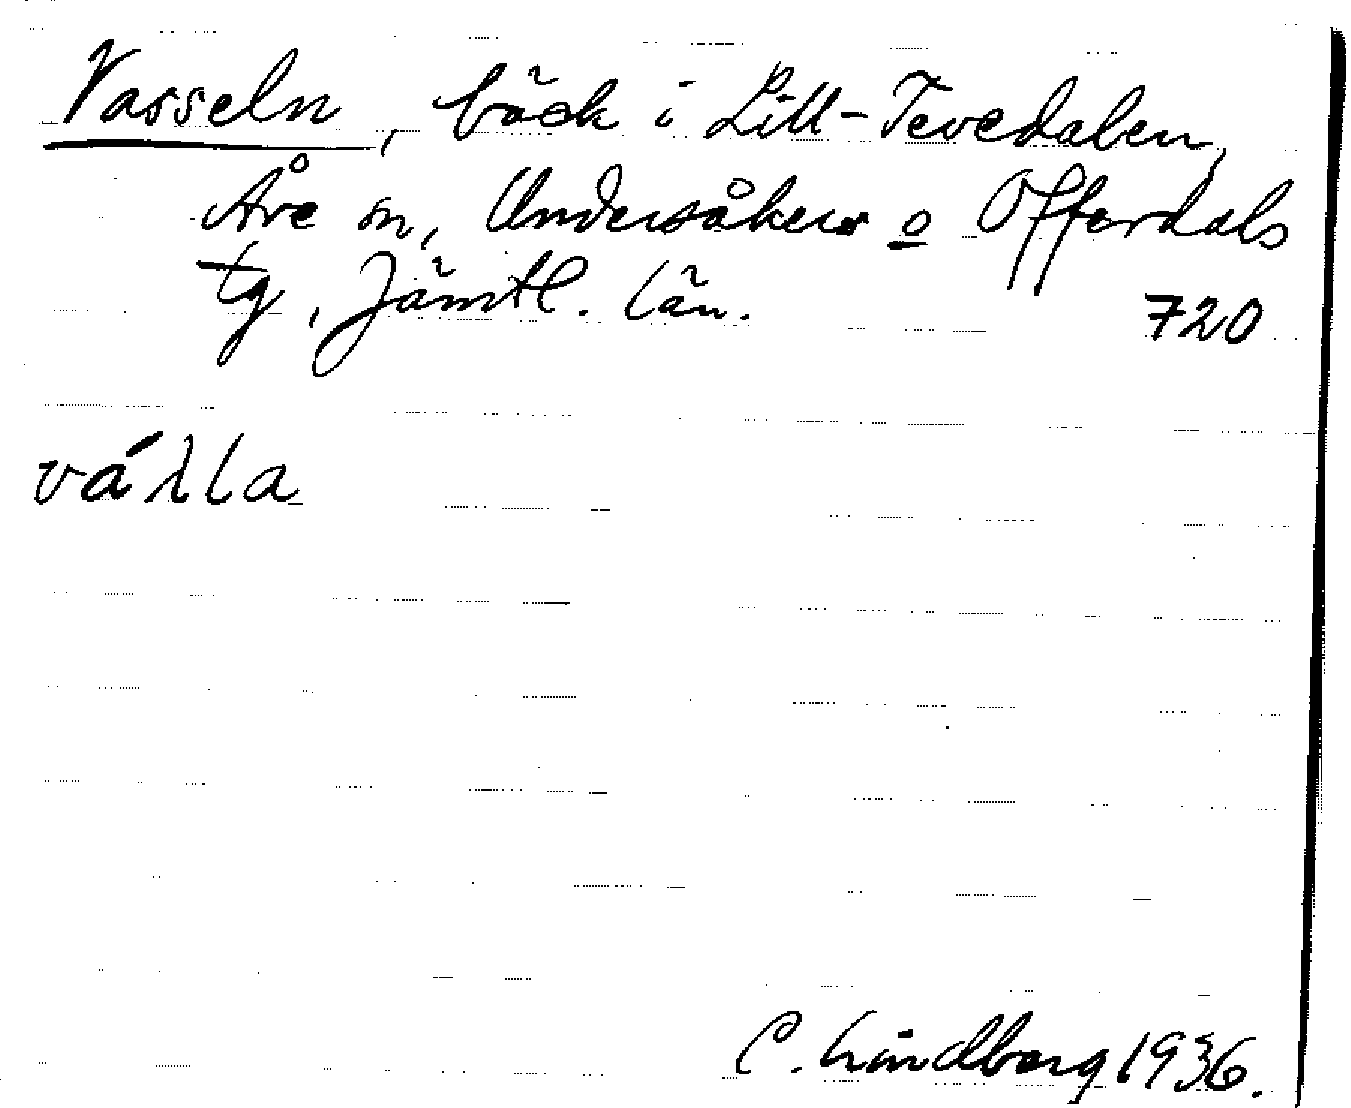 Vasseln, bäck i Lill-Tevedalen,
Åre sn, Undersåkers o Offerdals
tg, Jämtl. län.
720
váλla
C. Lindberg 1936.